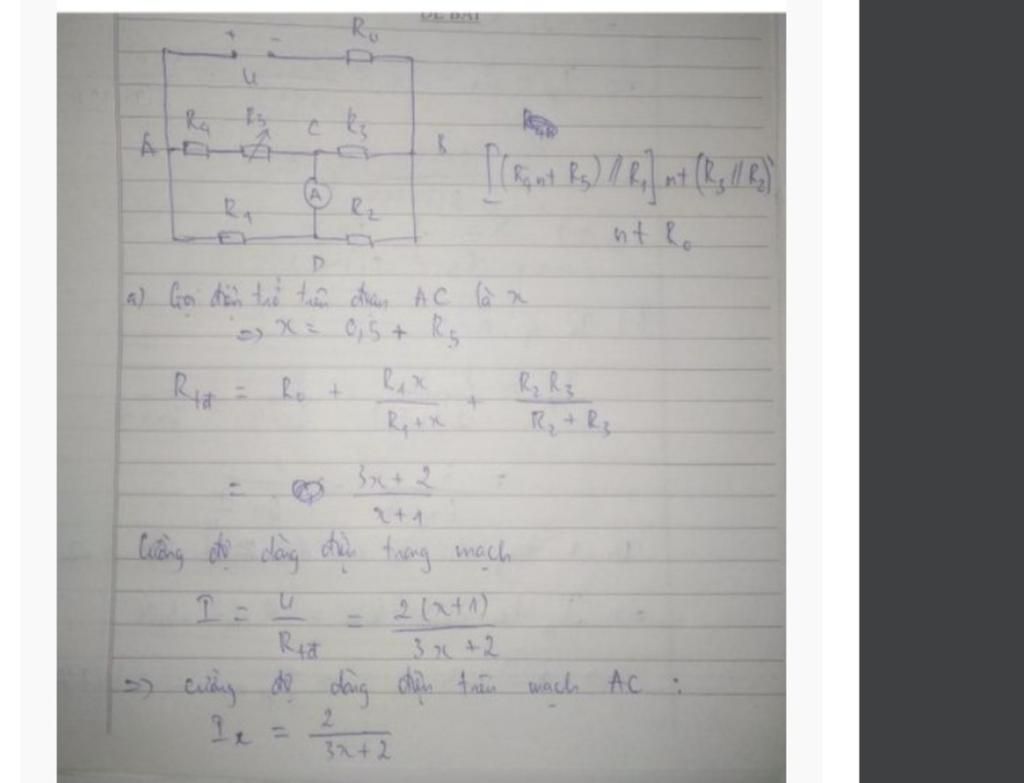 ĐỀ BÀI
+ -
R₀
U
R₄ R₅ C R₃
A B
A
R₁ R₂
D
[(R₄ nt R₅) // R₁] nt (R₃ // R₂)
nt R₀
a) Gọi điện trở trên đoạn AC là x
=> x = 0,5 + R₅
R_tđ = R₀ + R₁x / (R₁ + x) + R₂R₃ / (R₂ + R₃)
= (3x + 2) / (x + 1)
Cường độ dòng điện trong mạch
I = U / R_tđ = 2(x+1) / (3x + 2)
=> cường độ dòng điện trên mạch AC :
Iₓ = 2 / (3x + 2)